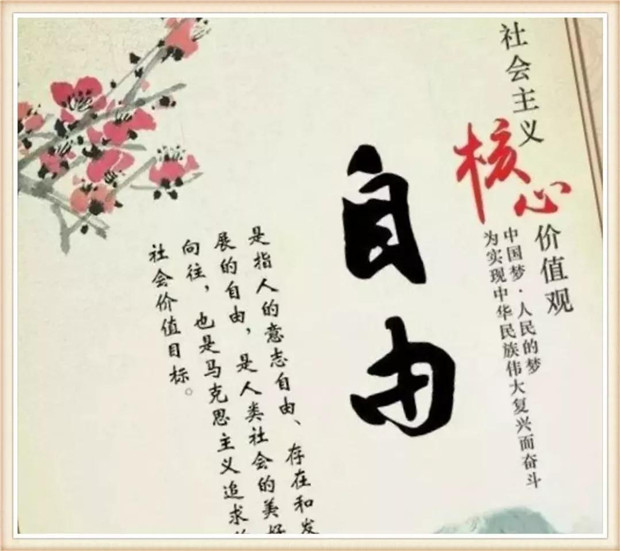 社会主义
核心
价值观
中国梦·人民的梦
为实现中华民族伟大复兴而奋斗
自由
是指人的意志自由、存在和发
展的自由，是人类社会的美好
向往，也是马克思主义追求的
社会价值目标。